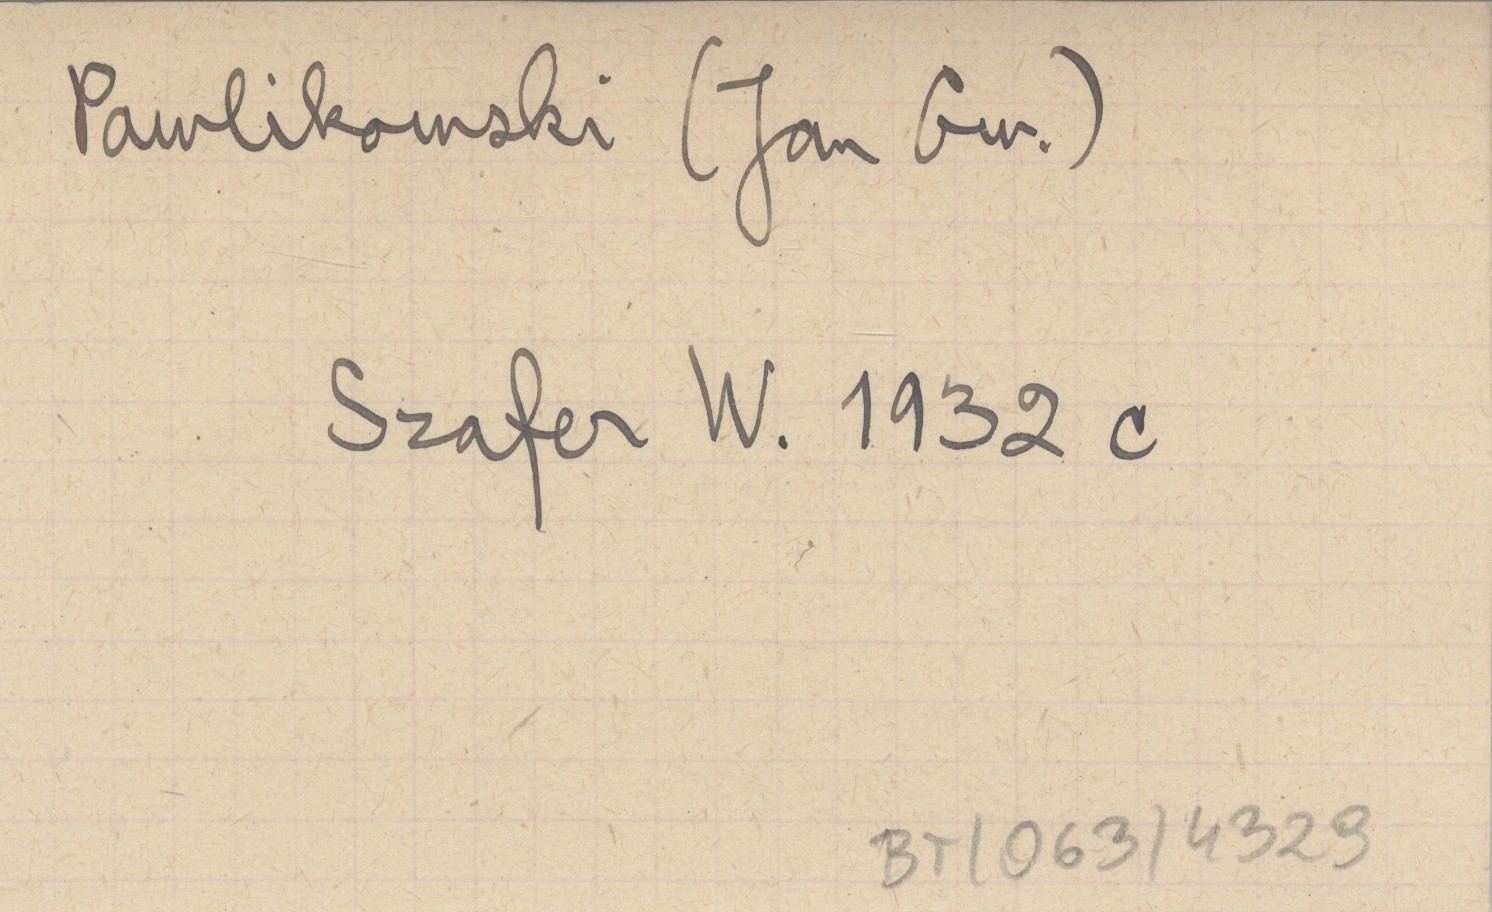 Pawlikowski (Jan Gw.)
Szafer W. 1932 c
BT/063/4329